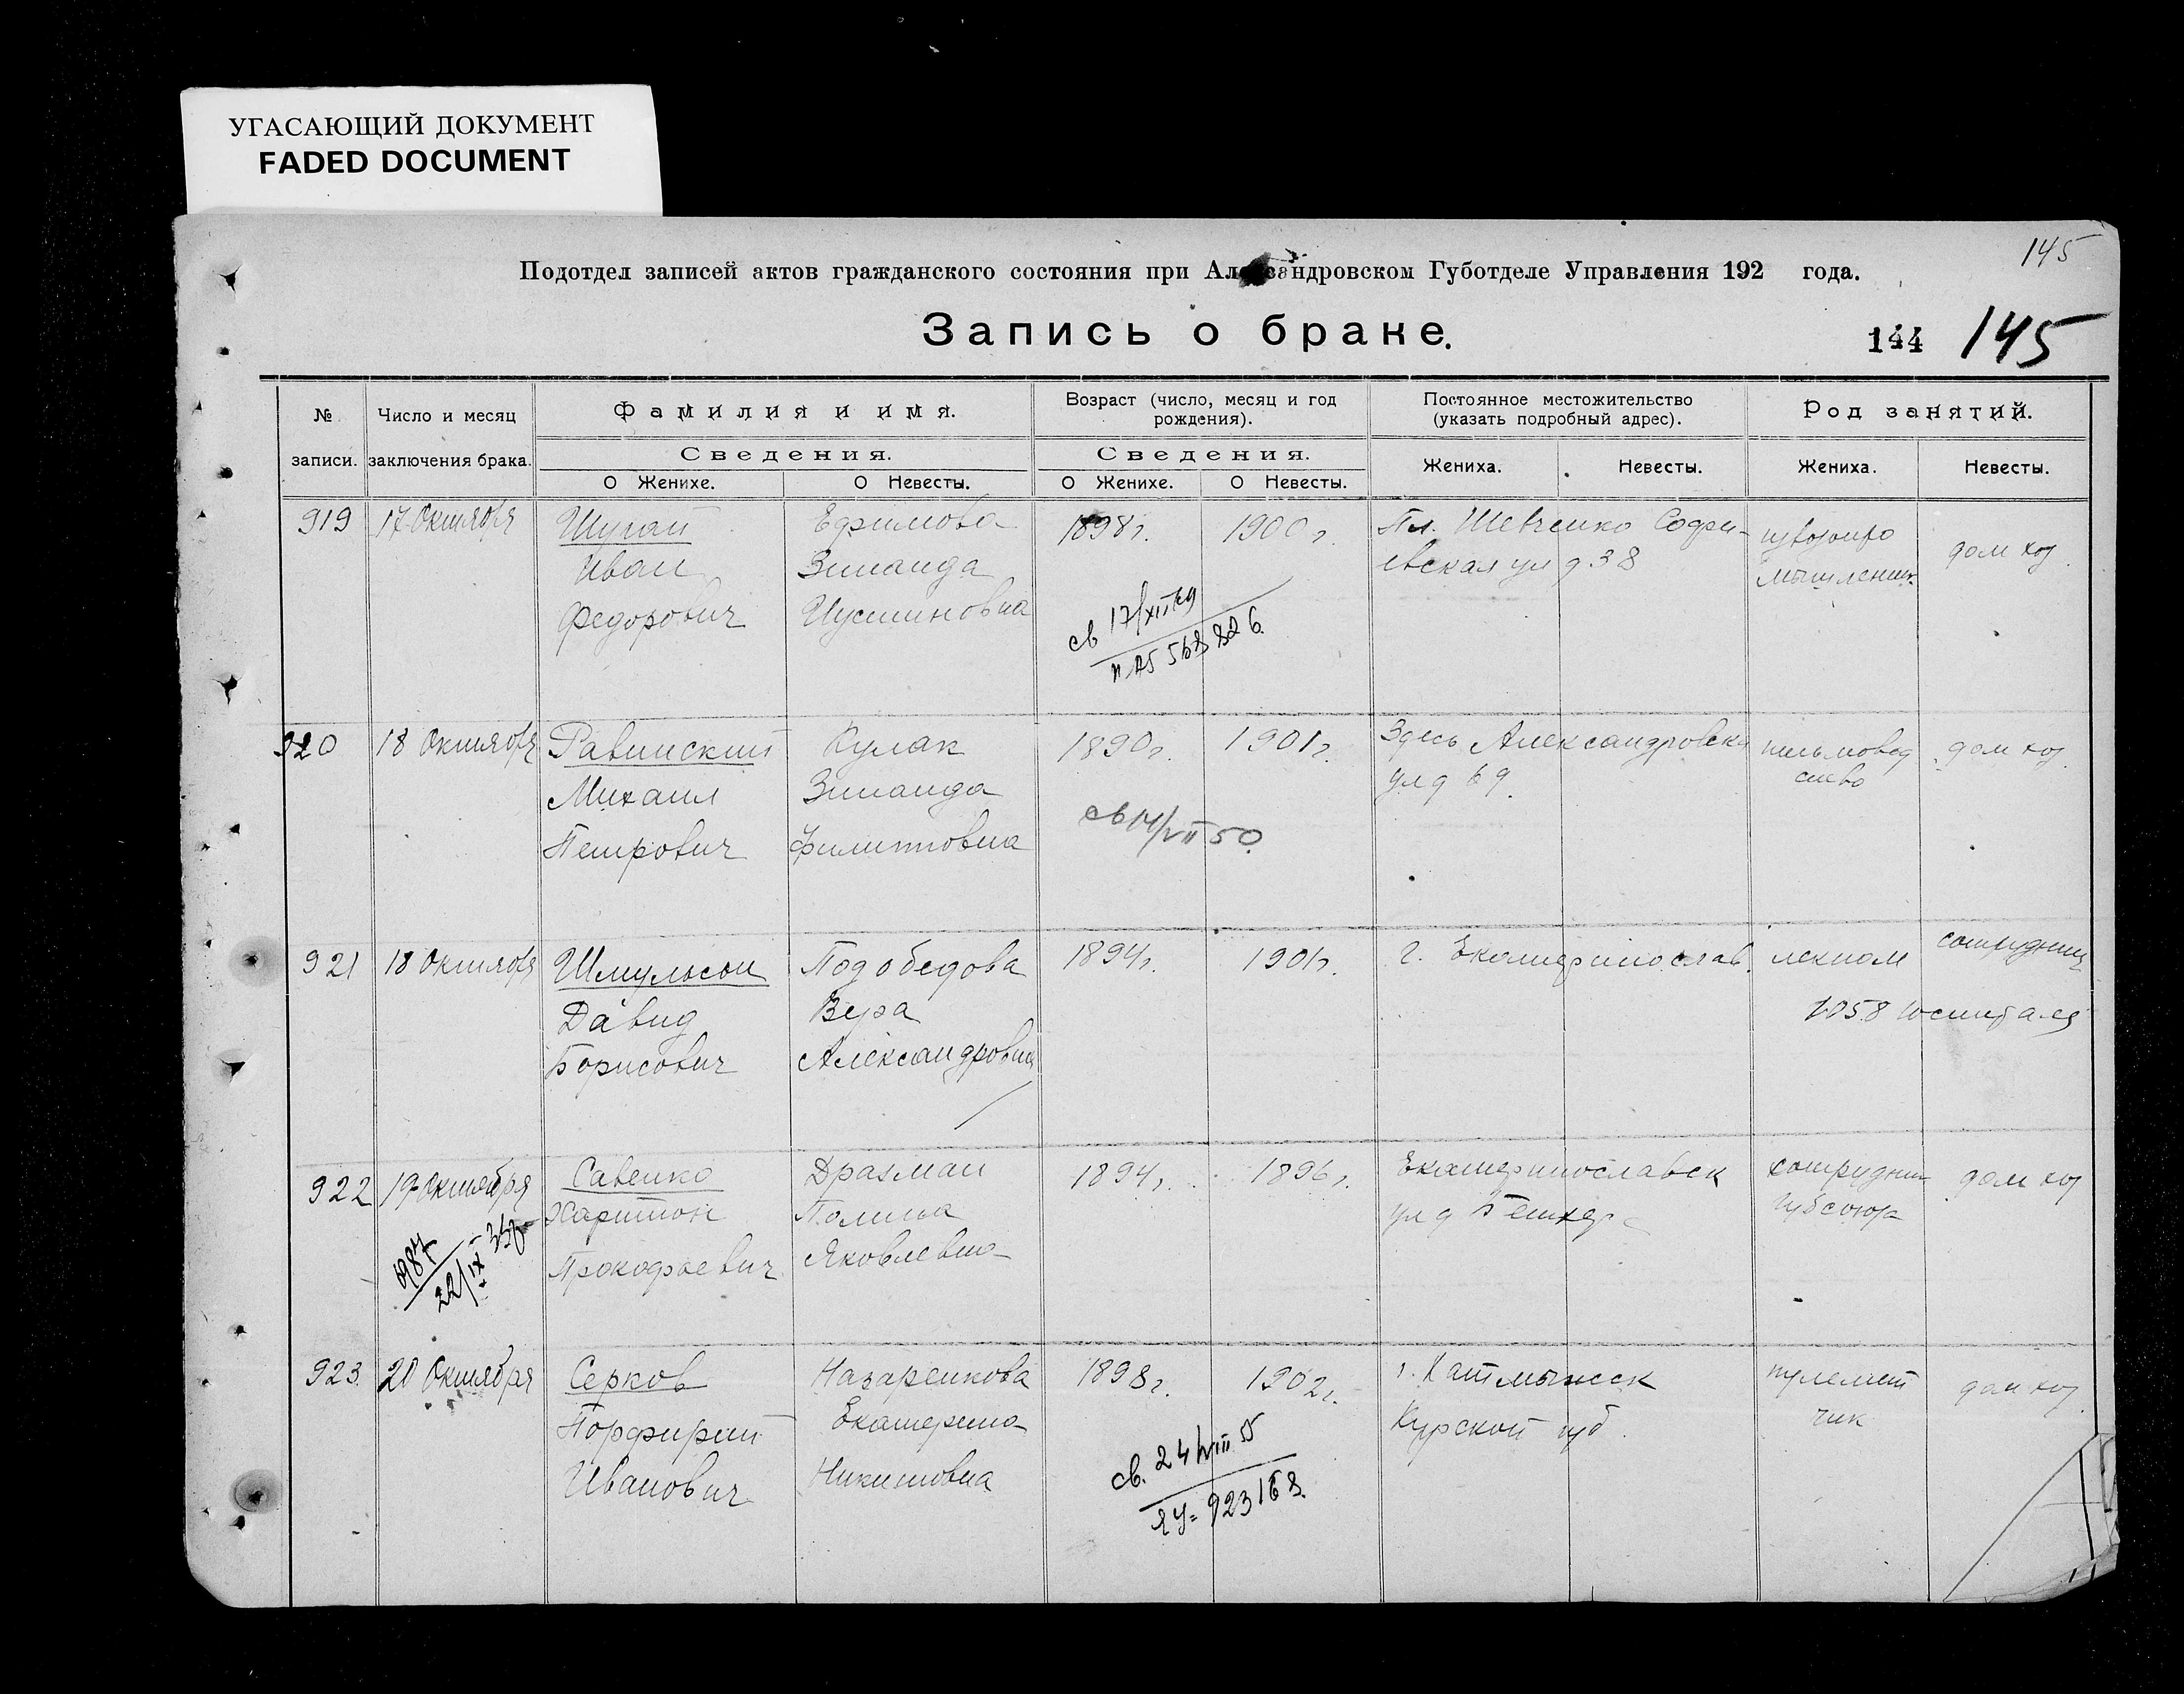 УГАСАЮЩИЙ ДОКУМЕНТ
FADED DOCUMENT
145
Подотдел записей актов гражданского состояния при Александровском Губотделе Управления 192 года.
Запись о браке.
144 145
№ записи.
Число и месяц заключения брака.
Фамилия и имя.
Сведения.
О Женихе.
О Невесты.
Возраст (число, месяц и год рождения).
Сведения.
О Женихе.
О Невесты.
Постоянное местожительство (указать подробный адрес).
Жениха.
Невесты.
Род занятий.
Жениха.
Невесты.
919 17 Октября Ефимова 1898г. 1900г. Пл. Шевченко Софи-
Иван Зинаида евская ул д. 38 дом хоз
Федорович Иустиновна мышленик.
св 17/XII
568826
920 18 Октября Равинский Кулак 1890г. 1901г. Здесь Александровска
Михаил Зинаида ул д 69. письмовод дом хоз.
Петрович Филипповна ство
св 14/VII 50
921 18 Октября Шмульсон Подобедова 1894г. 1901г. г. Екатеринослав. лекпом сотрудниц
Давид Вера 1058 госпиталя
Борисович Александровна
922 19 Октября Савенко 1894г. 1896г. Екатеринославск сотрудник дом хоз
Харитон Полина ул д губсоюза
Прокофьевич Яковлевна
22/IX
923. 20 Октября Серков Назаренкова 1898г. 1902г. пулемет дом хоз.
Порфирий Екатерина Курской губ. чик
Иванович Никитовна
св. 24/VIII 55
923168.